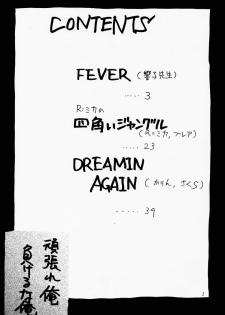 CONTENTS
FEVER (響子先生)
..... 3
R=ミカの
四角いジャングル
(R=ミカ, フレア)
..... 23
DREAMIN
AGAIN (かりん, さくら)
..... 39
頑張れ俺
負けるな俺
3